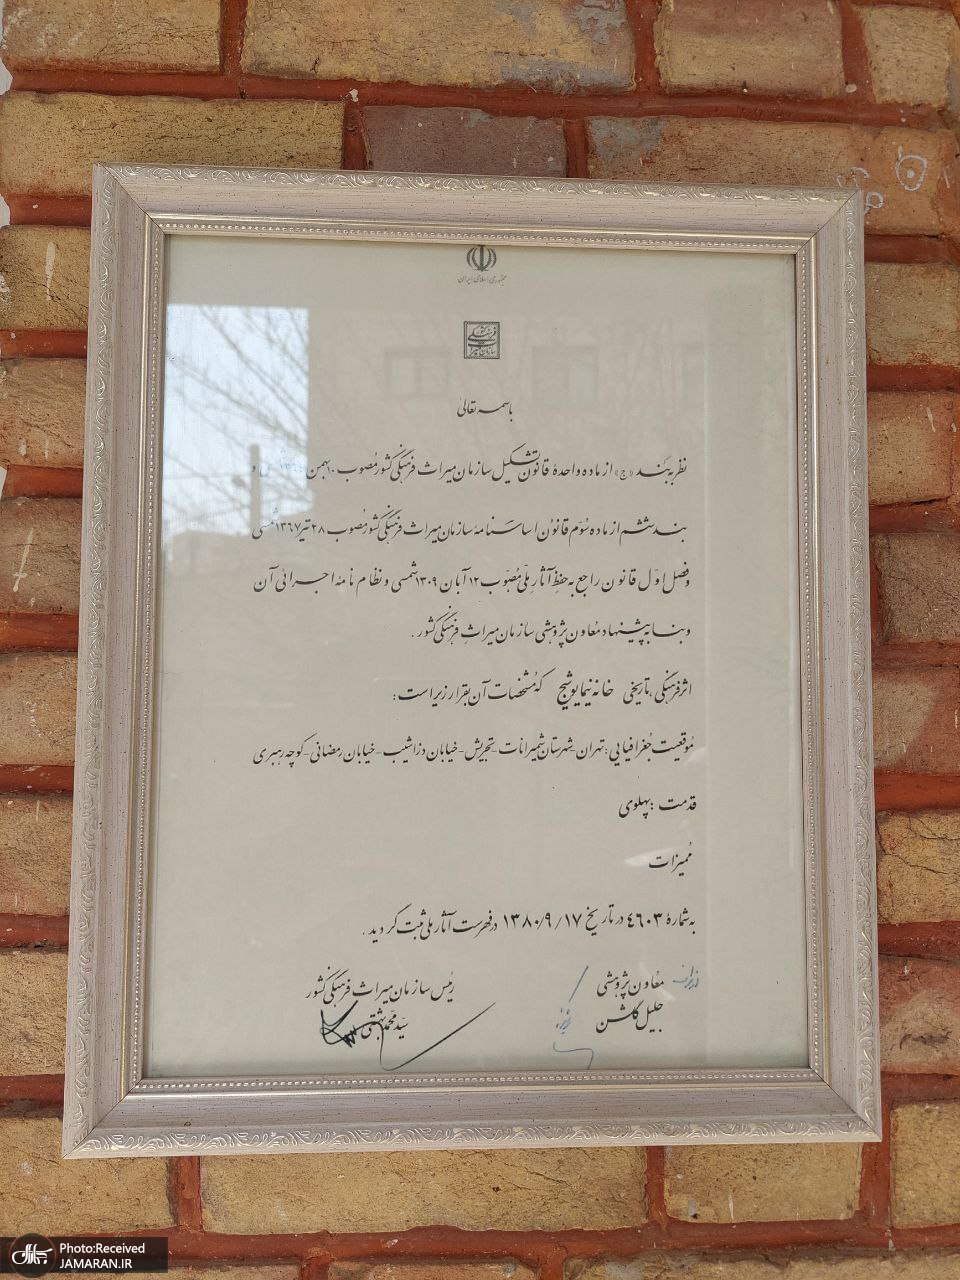 جمهوری اسلامی ایران
سازمان میراث فرهنگی کشور
باسمه تعالی
نظر به بند «ج» از ماده واحدهٔ قانون تشکیل سازمان میراث فرهنگی کشور مصوب ۱۰ بهمن ۱۳۶۴ شمسی و
بند ششم از ماده سوم قانون اساسنامهٔ سازمان میراث فرهنگی کشور مصوب ۲۸ تیر ۱۳۶۷ شمسی
و فصل اول قانون راجع به حفظ آثار ملّی مصوّب ۱۲ آبان ۱۳۰۹ شمسی و نظام نامهٔ اجرائی آن
و بنا به پیشنهاد معاون پژوهشی سازمان میراث فرهنگی کشور .
اثر فرهنگی ، تاریخی خانه نیما یوشیج که مشخصات آن بقرار زیر است :
موقعیت جغرافیایی : تهران - شهرستان شمیرانات - تجریش - خیابان دزاشیب - خیابان رمضانی - کوچه رهبری
قدمت : پهلوی
ممیزات
به شمارهٔ ۴۶۰۳ در تاریخ ۱۳۸۰/۹/۱۷ در فهرست آثار ملی ثبت گردید .
معاون پژوهشی
جلیل گلشن
رئیس سازمان میراث فرهنگی کشور
سیّد محمد بهشتی
Photo:Received
JAMARAN.IR